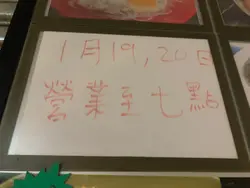 1月19,20日
營業至七點